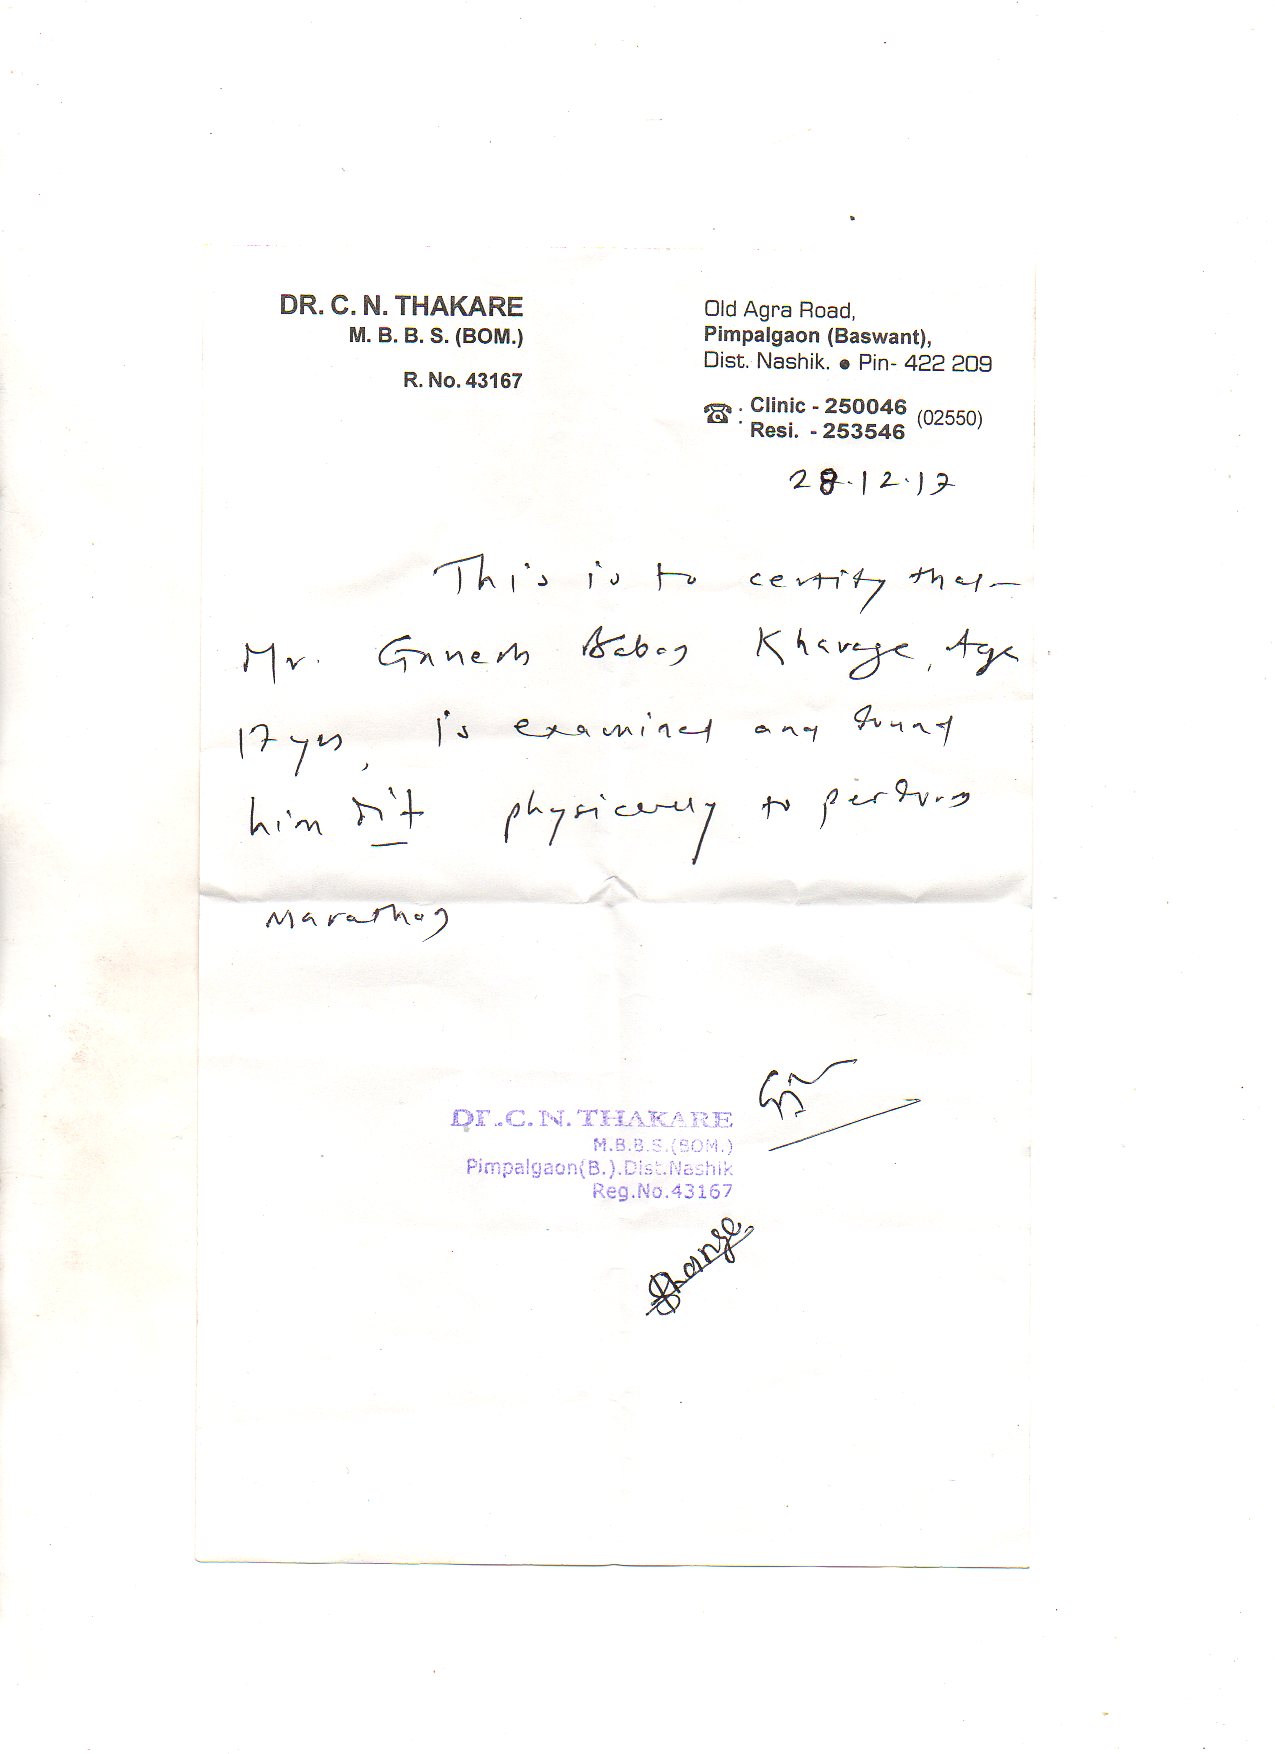 DR. C. N. THAKARE
M. B. B. S. (BOM.)
R. No. 43167
Old Agra Road,
Pimpalgaon (Baswant),
Dist. Nashik. ● Pin- 422 209
☎ : Clinic - 250046 (02550)
Resi. - 253546
28.12.17
This is to certify that
Mr. Ganesh Kharage, Age
17 yrs, is examined and found
him fit physically to perform
Marathon
Dr.C.N.THAKARE
M.B.B.S.(BOM.)
Pimpalgaon(B.).Dist.Nashik
Reg.No.43167